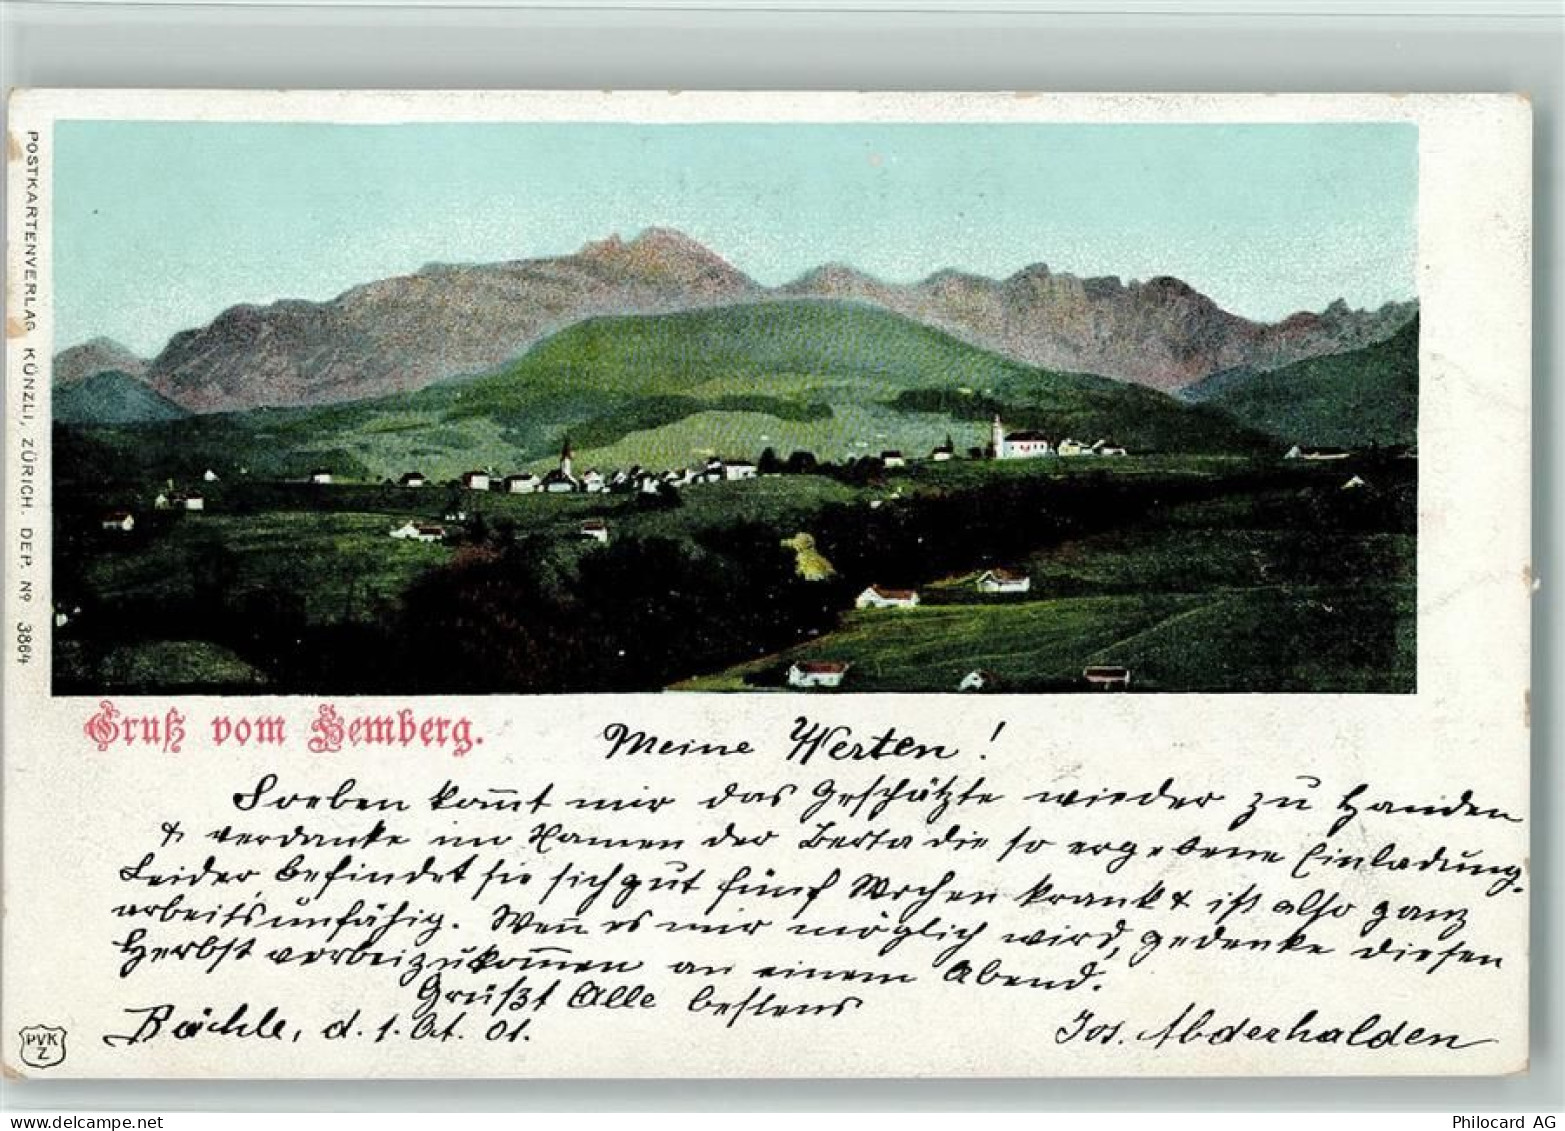 POSTKARTENVERLAG KÜNZLI, ZÜRICH. DEP. Nº 3864
Gruß vom Hemberg.
Meine Werten!
Soeben kom̅t mir das Geschätzte wieder zu Handen
& verdanke im Namen der Berta die so ergebene Einladung.
Leider befindet sie sich gut fünf Wochen krank & ist also ganz
arbeitsunfähig. Wen̅ es mir möglich wird, gedenke diesen
Herbst vorbeizukom̅en an einem Abend.
Grüßt Alle bestens
Bächle, d. 1. Okt. 01.
Jos. Abderhalden
PVK
Z
Philocard AG